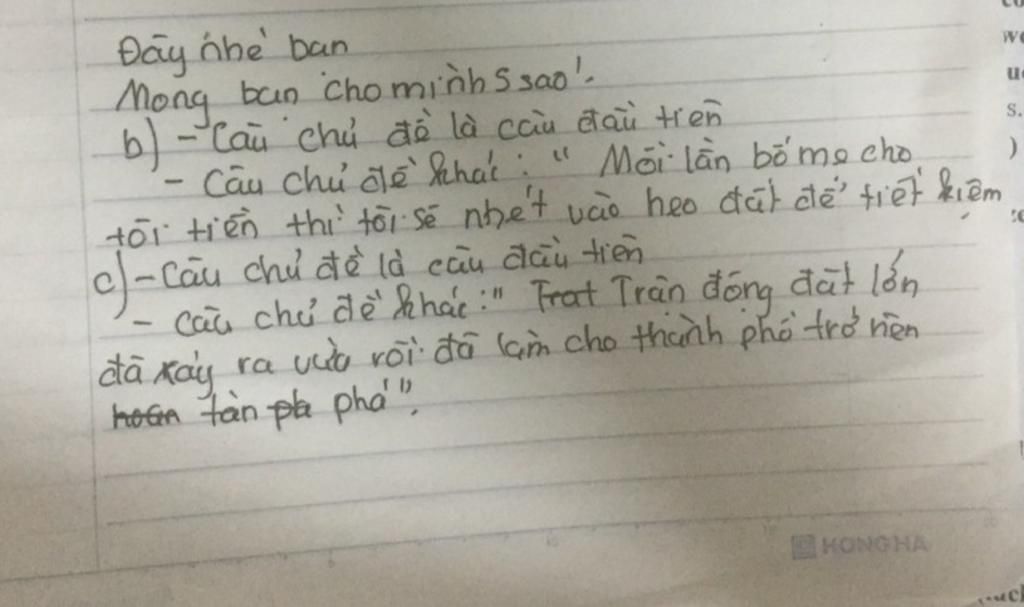 Đây nhé bạn
Mong bạn cho mình 5 sao!
b) - Câu chủ đề là câu đầu tiên
- Câu chủ đề khác: " Mỗi lần bố mẹ cho
tôi tiền thì tôi sẽ nhét vào heo đất để tiết kiệm
c) - Câu chủ đề là câu đầu tiên
- Câu chủ đề khác: " Trận động đất lớn
đã xảy ra vừa rồi đã làm cho thành phố trở nên
tàn phá".
HONG HA